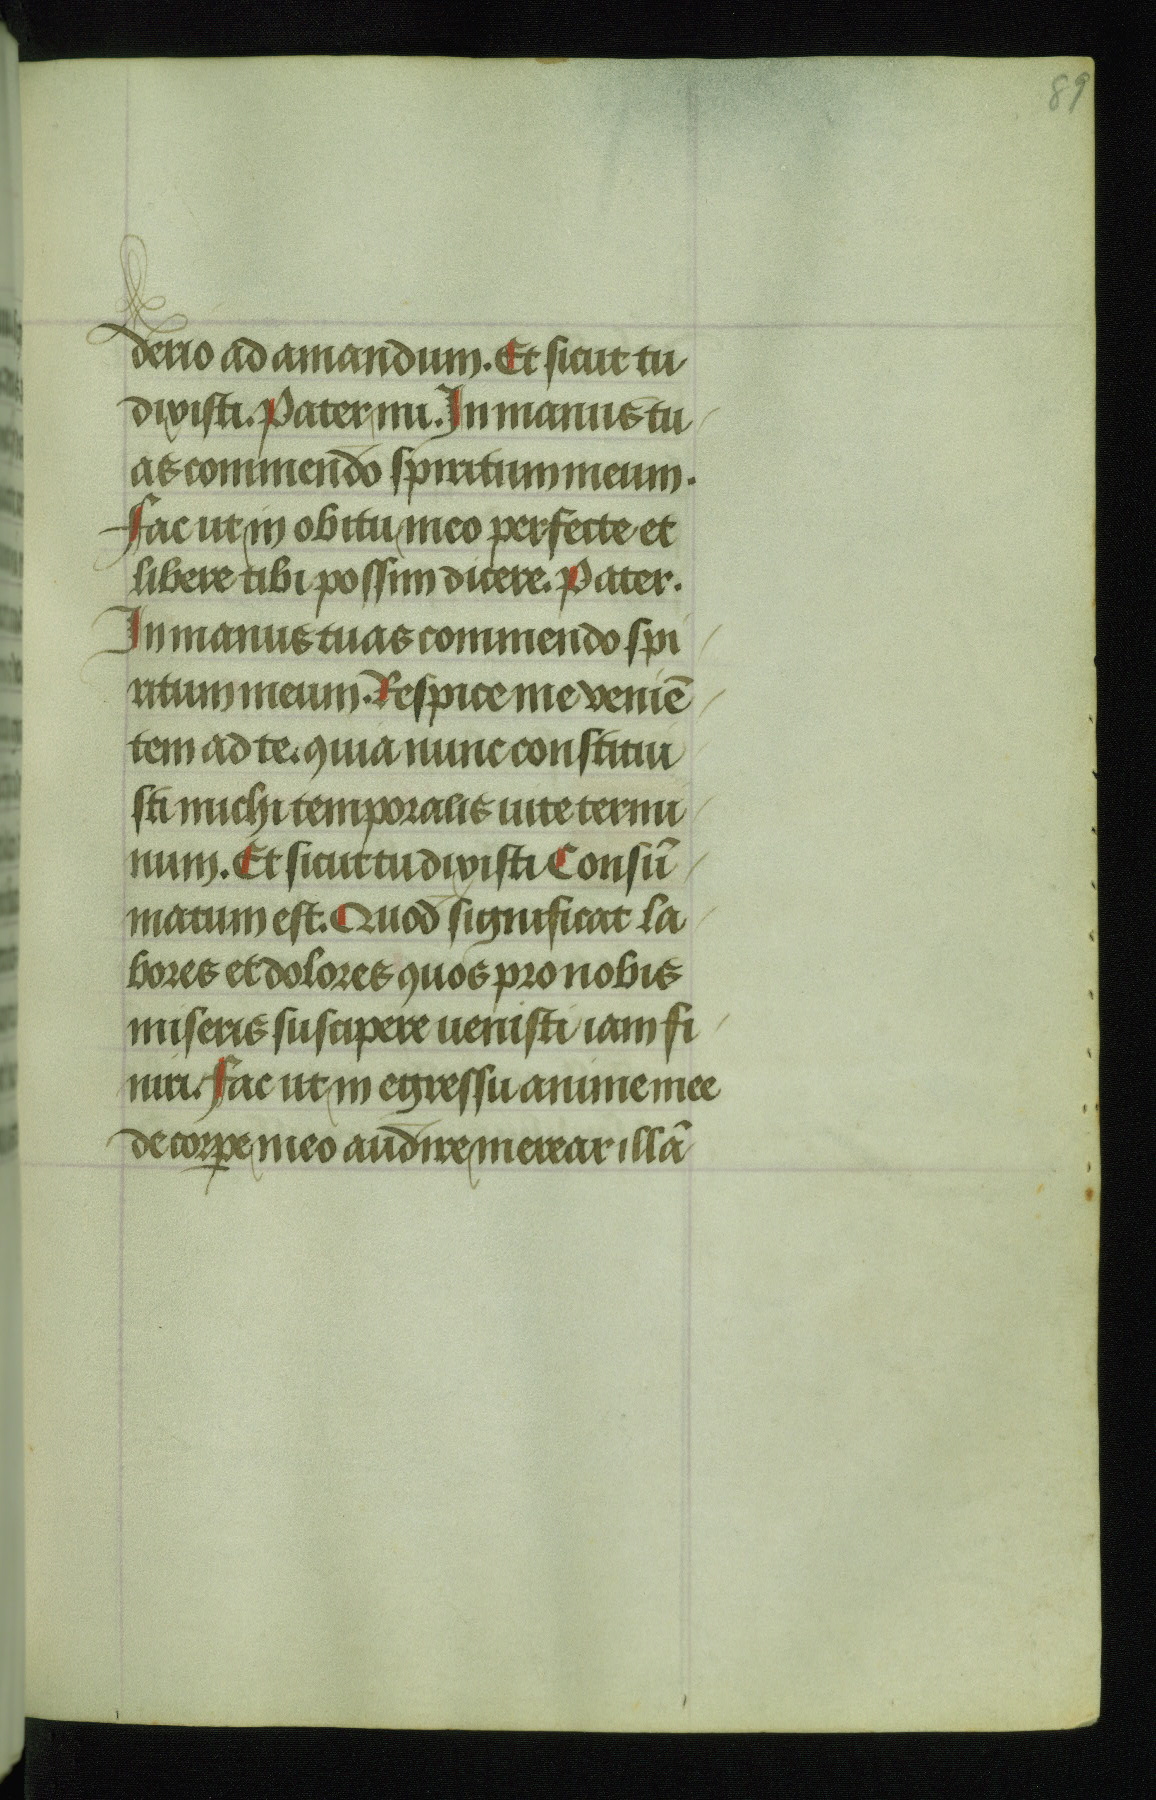 89
derio ad amandum. Et sicut tu
dixisti. Pater mi. In manus tu
as commendo spiritum meum.
Fac ut in obitu meo perfecte et
libere tibi possim dicere. Pater.
In manus tuas commendo spi
ritum meum. Respice me veniē
tem ad te. quia nunc constitui
sti michi temporalis uite termi
num. Et sicut tu dixisti Consū
matum est. Quod significat la
bores et dolores quos pro nobis
miseris suscipere uenisti iam fi
niri. Fac ut in egressu anime mee
de corꝑe meo audire merear illā